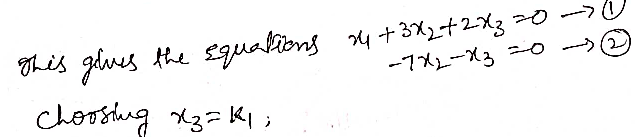 This gives the equations x₁ + 3x₂ + 2x₃ = 0 → ①
-7x₂ - x₃ = 0 → ②
Choosing x₃ = K₁;